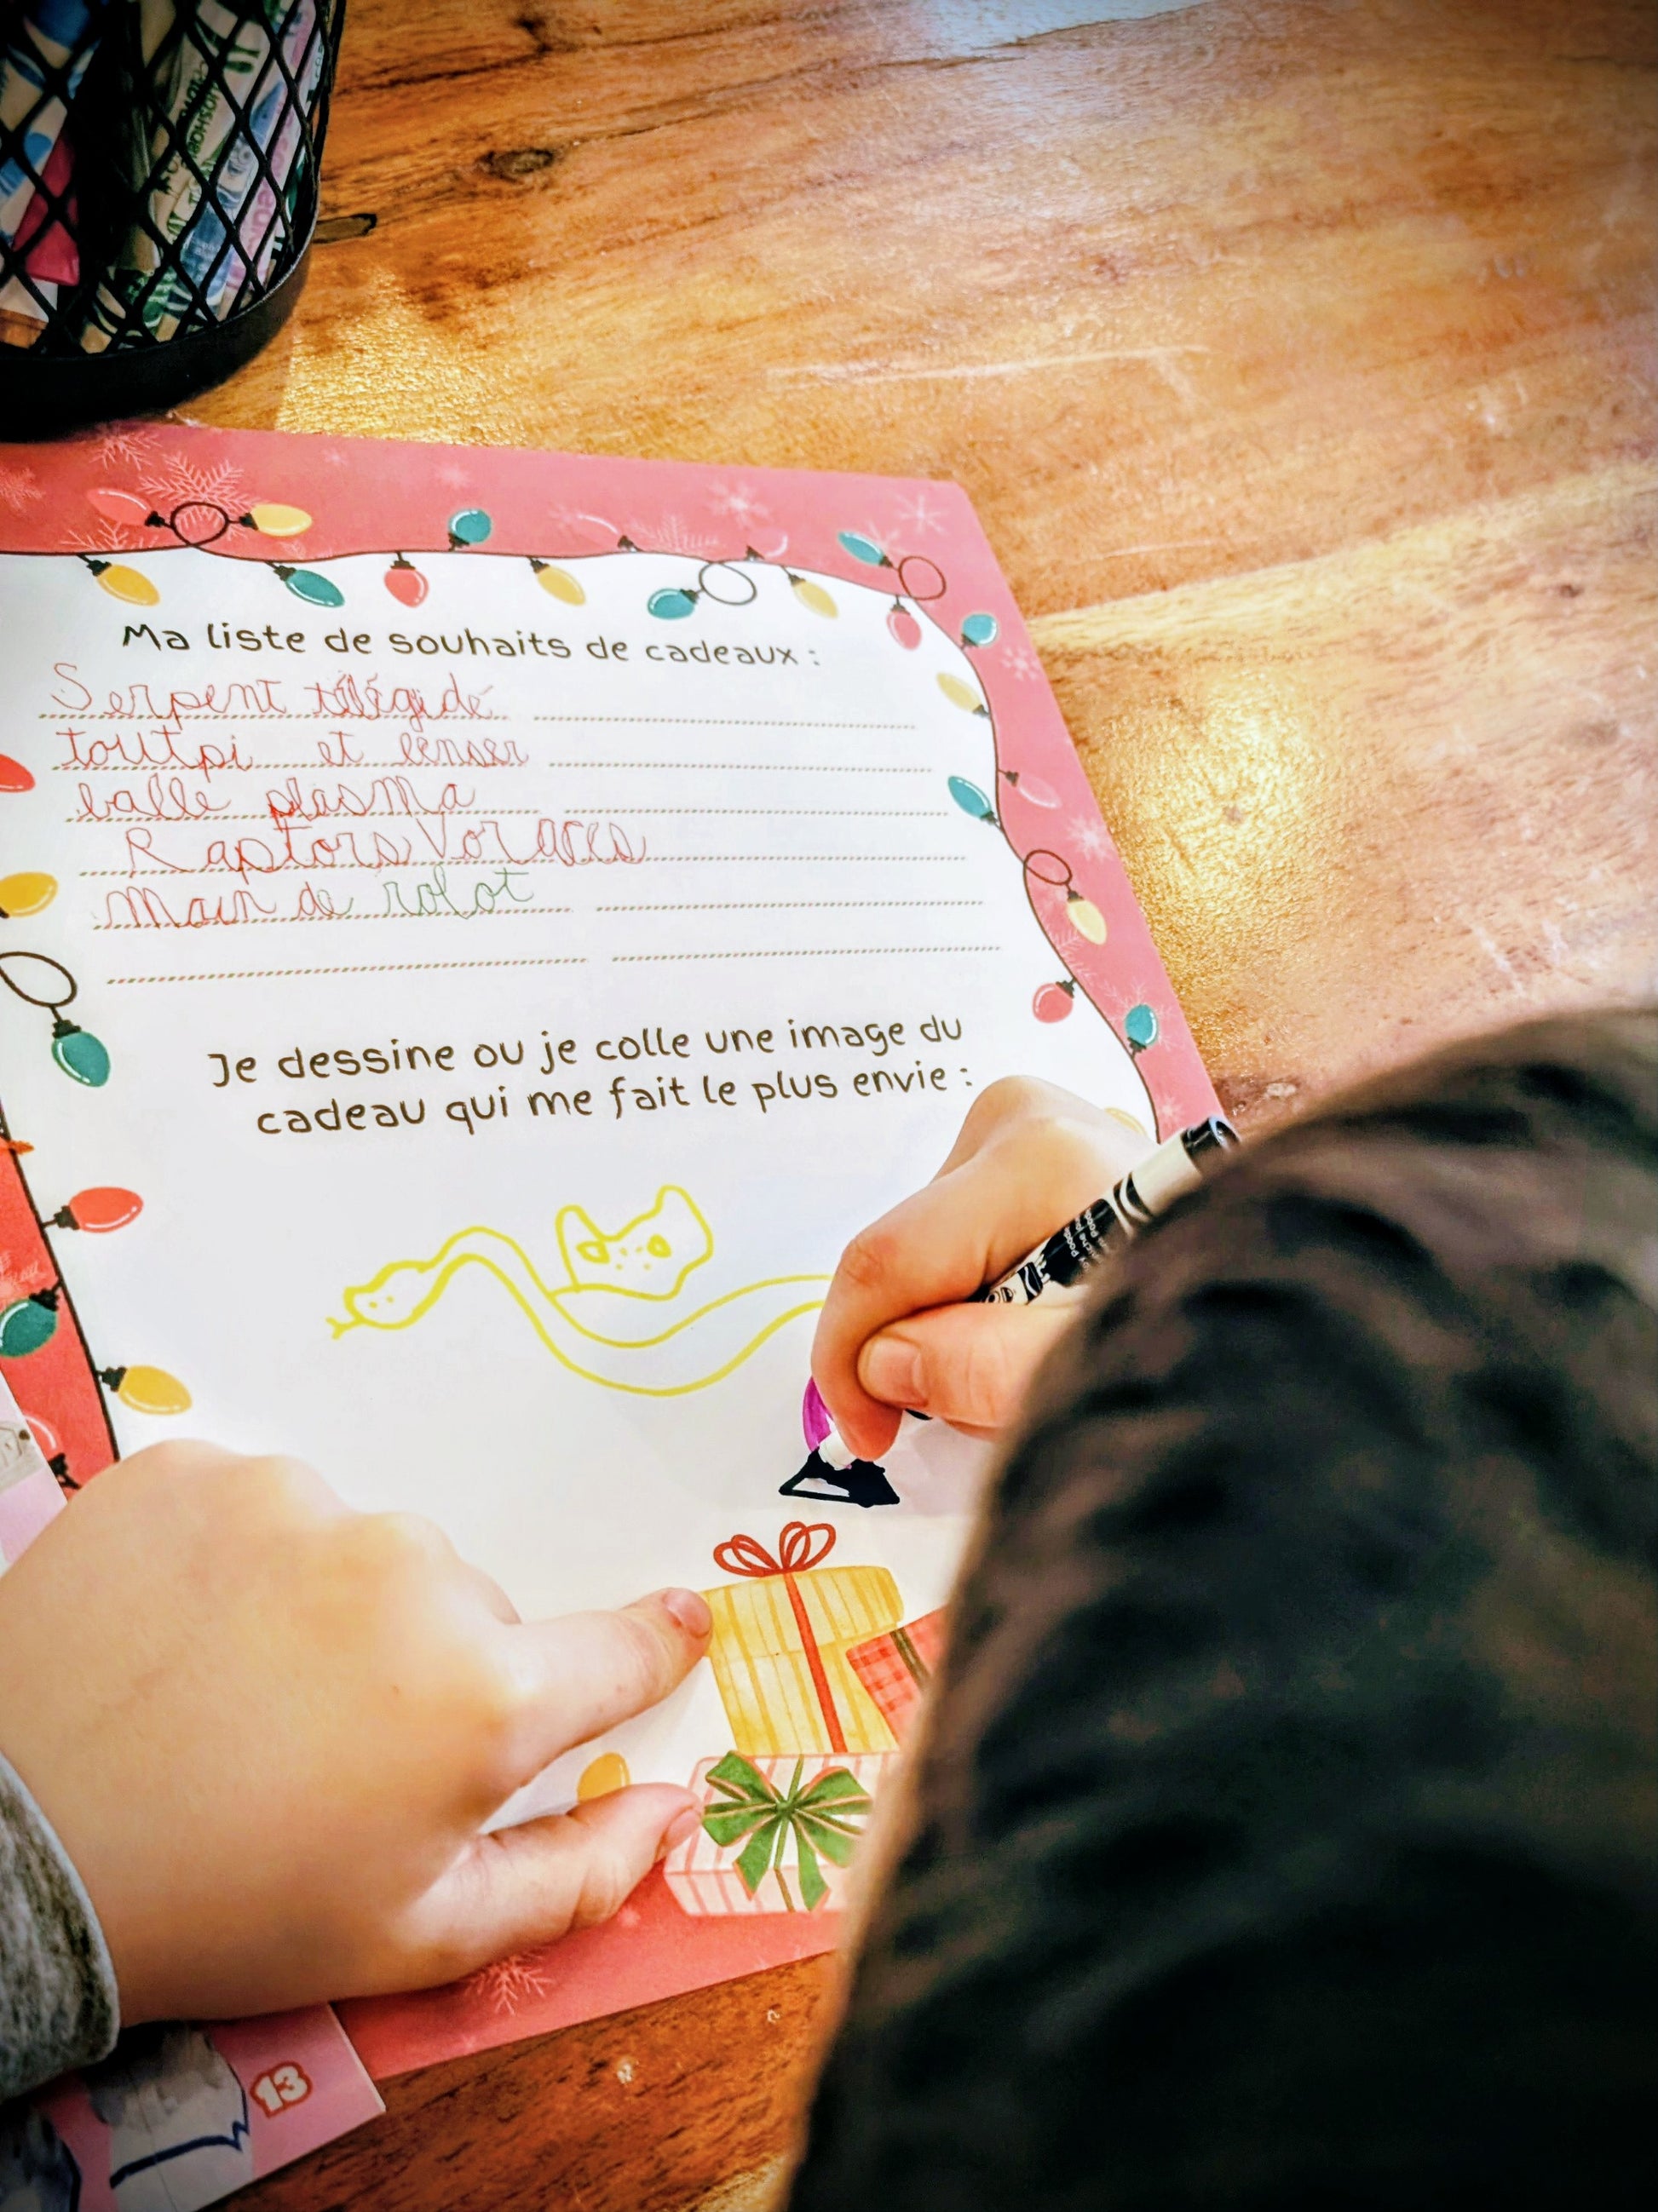 Ma liste de souhaits de cadeaux :
Serpent télégidé
toutpi et lenser
balle plasma
Raptors Voraces
main de robot
Je dessine ou je colle une image du
cadeau qui me fait le plus envie :
13